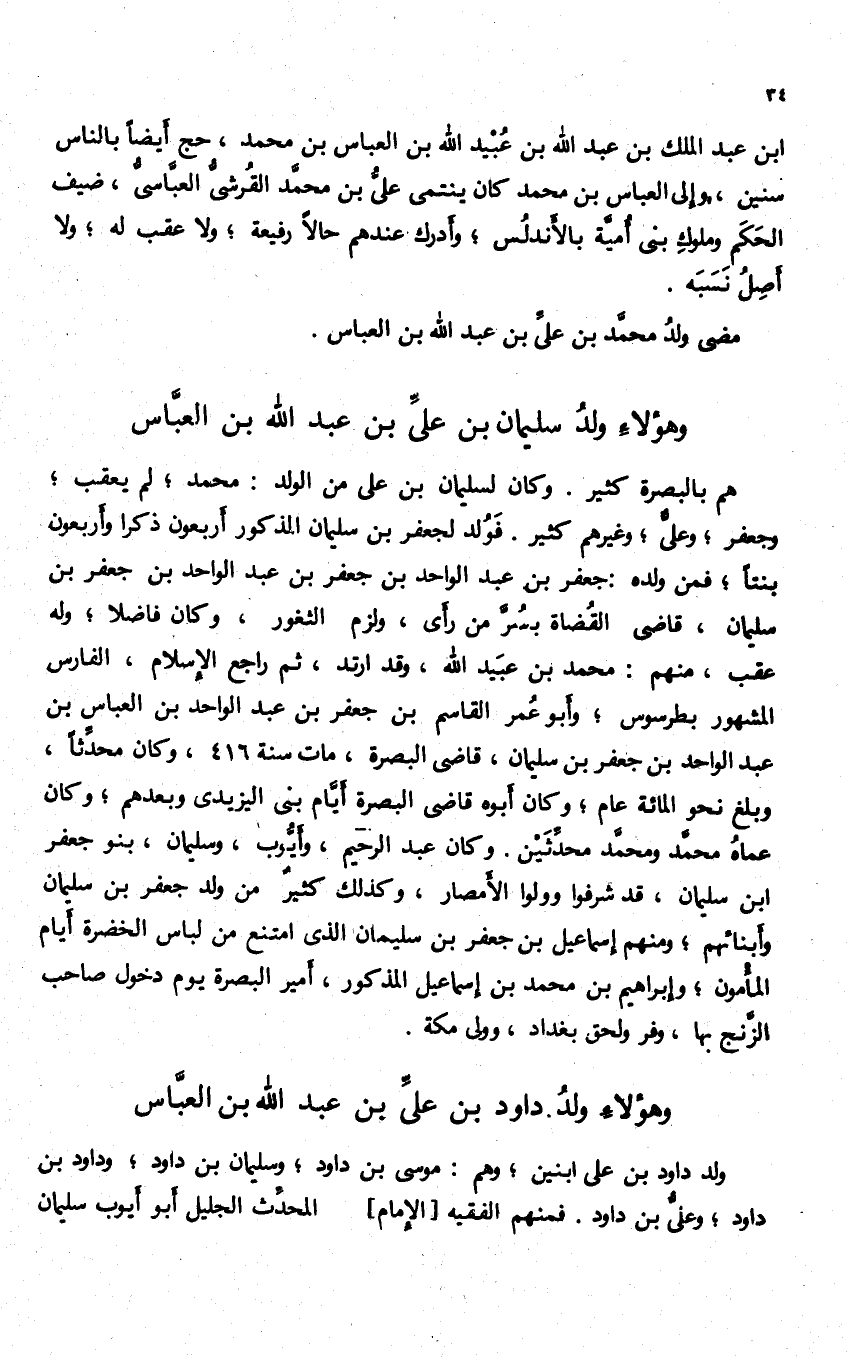 ٣٤
ابن عبد الملك بن عبد الله بن عُبْيد الله بن العباس بن محمد ، حج أيضاً بالناس
سنين ، وإلى العباس بن محمد كان ينتمى علىُّ بن محمَّد القُرشىُّ العبَّاسىُّ ، ضيف
الحَكَم وملوكِ بنى أُميَّة بالأَندلُس ؛ وأَدرك عندهم حالاً رفيعة ؛ ولا عقب له ؛ ولا
أَصِلُ نَسَبَه .
مضى ولدُ محمَّد بن علىِّ بن عبد الله بن العباس .
وهؤلاء ولدُ سليمان بن علىِّ بن عبد الله بن العبَّاس
هم بالبصرة كثير . وكان لسليمان بن على من الولد : محمد ؛ لم يعقب ؛
وجعفر ؛ وعلىُّ ؛ وغيرهم كثير . فَوُلد لجعفر بن سليمان المذكور أَربعون ذكرا وأَربعون
بنتاً ؛ فمن ولده : جعفر بن عبد الواحد بن جعفر بن عبد الواحد بن جعفر بن
سليمان ، قاضى القُضاة بسُرَّ من رأى ، ولزم الثغور ، وكان فاضلا ؛ وله
عقب ، منهم : محمد بن عبَيد الله ، وقد ارتد ، ثم راجع الإسلام ، الفارس
المشهور بطرسوس ؛ وأَبو عُمر القاسم بن جعفر بن عبد الواحد بن العباس بن
عبد الواحد بن جعفر بن سليمان ، قاضى البصرة ، مات سنة ٤١٦ ، وكان محدِّثاً ،
وبلغ نحو المائة عام ؛ وكان أَبوه قاضى البصرة أَيَّام بنى اليزيدى وبعدهم ؛ وكان
عماهُ محمَّد ومحمَّد محدِّثَيْن . وكان عبد الرحيم ، وأَيُّوب ، وسليمان ، بنو جعفر
ابن سليمان ، قد شرفوا وولوا الأَمصار ، وكذلك كثيرٌ من ولد جعفر بن سليمان
وأَبنائهم ؛ ومنهم إسماعيل بن جعفر بن سليمان الذى امتنع من لباس الخضرة أَيام
المأْمون ؛ وإبراهيم بن محمد بن إسماعيل المذكور ، أَمير البصرة يوم دخول صاحب
الزَّنج بها ، وفر ولحق بغداد ، وولى مكة .
وهؤلاء ولدُ داود بن علىِّ بن عبد الله بن العبَّاس
ولد داود بن على ابنين ؛ وهم : موسى بن داود ؛ وسليمان بن داود ؛ وداود بن
داود ؛ وعلىُّ بن داود . فمنهم الفقيه [ الإمام] المحدِّث الجليل أَبو أَيوب سليمان